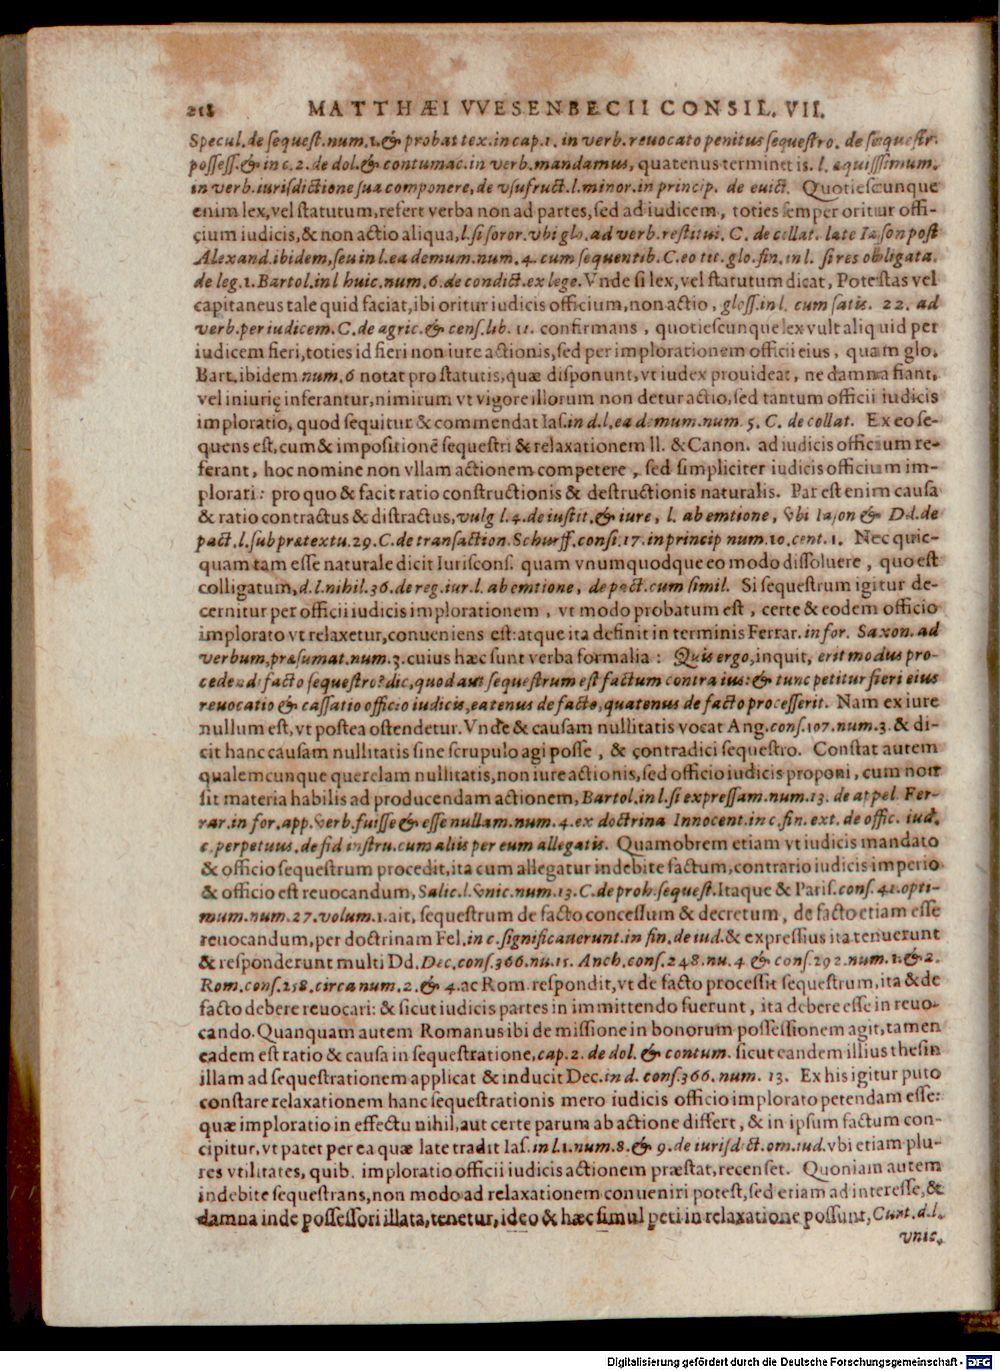 218 MATTHÆI VVESENBECII CONSIL. VII.
Specul. de sequest. num. 1. & probat tex. in cap. 1. in verb. reuocato penitus sequestro. de sequestr.
possess. & in c. 2. de dol. & contumac. in verb. mandamus, quatenus terminetis. l. æquissimum.
in verb. iurisdictione sua componere, de vsufruct. l. minor. in princip. de euict. Quotiescunque
enim lex, vel statutum, refert verba non ad partes, sed ad iudicem, toties semper oritur offi-
cium iudicis, & non actio aliqua, l. si soror. vbi glo. ad verb. restitui. C. de collat. late Iason post
Alexand. ibidem, seu in l. ea demum. num. 4. cum sequentib. C. eo tit. glo. fin. in l. si res obligata.
de leg. 1. Bartol. in l huic. num. 6. de condict. ex lege. Vnde si lex, vel statutum dicat, Potestas vel
capitaneus tale quid faciat, ibi oritur iudicis officium, non actio, gloss. in l. cum satis. 22. ad
verb. per iudicem. C. de agric. & cens. lib. 11. confirmans, quotiescunque lex vult aliquid per
iudicem fieri, toties id fieri non iure actionis, sed per implorationem officii eius, quam glo.
Bart. ibidem num. 6 notat pro statutis, quæ disponunt, vt iudex prouideat, ne damna fiant,
vel iniurię inferantur, nimirum vt vigore illorum non detur actio, sed tantum officii iudicis
imploratio, quod sequitur & commendat Ias. in d. l. ea demum. num. 5. C. de collat. Ex eo se-
quens est, cum & impositionē sequestri & relaxationem ll. & Canon. ad iudicis officium re-
ferant, hoc nomine non vllam actionem competere, sed simpliciter iudicis officium im-
plorari: pro quo & facit ratio constructionis & destructionis naturalis. Par est enim causa
& ratio contractus & distractus, vulg l. 4. de iustit. & iure, l. ab emtione, vbi Iason & Dd. de
pact. l. sub prætextu. 29. C. de transaction. Schurff. consi. 17. in princip num. 10. cent. 1. Nec quic-
quam tam esse naturale dicit Iuriscons. quam vnumquodque eo modo dissoluere, quo est
colligatum, d. l. nihil. 36. de reg. iur. l. ab emtione, de pact. cum simil. Si sequestrum igitur de-
cernitur per officii iudicis implorationem, vt modo probatum est, certe & eodem officio
implorato vt relaxetur, conueniens est: atque ita definit in terminis Ferrar. in for. Saxon. ad
verbum, præsumat. num. 3. cuius hæc sunt verba formalia: Quis ergo, inquit, erit modus pro-
cedendi facto sequestro? dic, quod aut sequestrum est factum contra ius: & tunc petitur fieri eius
reuocatio & cassatio officio iudicis, eatenus de facto, quatenus de facto processerit. Nam ex iure
nullum est, vt postea ostendetur. Vnde & causam nullitatis vocat Ang. cons. 107. num. 3. & di-
cit hanc causam nullitatis sine scrupulo agi posse, & contradici sequestro. Constat autem
qualemcunque querelam nullitatis, non iure actionis, sed officio iudicis proponi, cum non
sit materia habilis ad producendam actionem, Bartol. in l. si expressam. num. 13. de appel. Fer-
rar. in for. app. verb. fuisse & esse nullam. num. 4. ex doctrina Innocent. in c. fin. ext. de offic. iud.
c. perpetuus. de fid instru. cum aliis per eum allegatis. Quamobrem etiam vt iudicis mandato
& officio sequestrum procedit, ita cum allegatur indebite factum, contrario iudicis imperio
& officio est reuocandum, Salic. l. vnic. num. 13. C. de prob. sequest. Itaque & Paris. cons. 41. opti-
mum. num. 27. volum. 1. ait, sequestrum de facto concessum & decretum, de facto etiam esse
reuocandum, per doctrinam Fel. in c. significauerunt. in fin. de iud. & expressius ita tenuerunt
& responderunt multi Dd. Dec. cons. 366. nu. 15. Anch. cons. 248. nu. 4 & cons. 292. num. 1. & 2.
Rom. cons. 258. circa num. 2. & 4. ac Rom. respondit, vt de facto processit sequestrum, ita & de
facto debere reuocari: & sicut iudicis partes in immittendo fuerunt, ita debere esse in reuo-
cando. Quanquam autem Romanus ibi de missione in bonorum possessionem agit, tamen
eadem est ratio & causa in sequestratione, cap. 2. de dol. & contum. sicut eandem illius thesin
illam ad sequestrationem applicat & inducit Dec. in d. cons. 366. num. 13. Ex his igitur puto
constare relaxationem hanc sequestrationis mero iudicis officio implorato petendam esse:
quæ imploratio in effectu nihil, aut certe parum ab actione differt, & in ipsum factum con-
cipitur, vt patet per ea quæ late tradit Ias. in l. 1. num. 8. & 9. de iurisdict. om. iud. vbi etiam plu-
res vtilitates, quib. imploratio officii iudicis actionem præstat, recenset. Quoniam autem
indebite sequestrans, non modo ad relaxationem conueniri potest, sed etiam ad interesse, &
damna inde possessori illata, tenetur, ideo & hæc simul peti in relaxatione possunt, Cunt. d. l.
vnic.
Digitalisierung gefördert durch die Deutsche Forschungsgemeinschaft - DFG